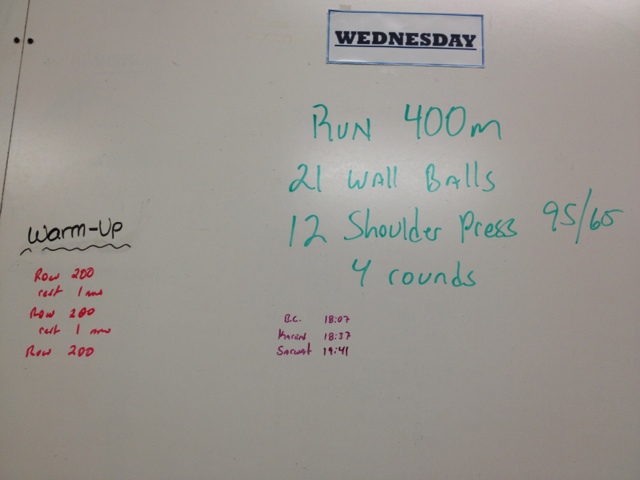 WEDNESDAY
RUN 400m
21 Wall Balls
12 Shoulder Press 95/65
4 rounds
Warm-Up
Row 200
rest 1 min
Row 200
rest 1 min
Row 200
B.C. 18:07
Karen 18:37
19:41